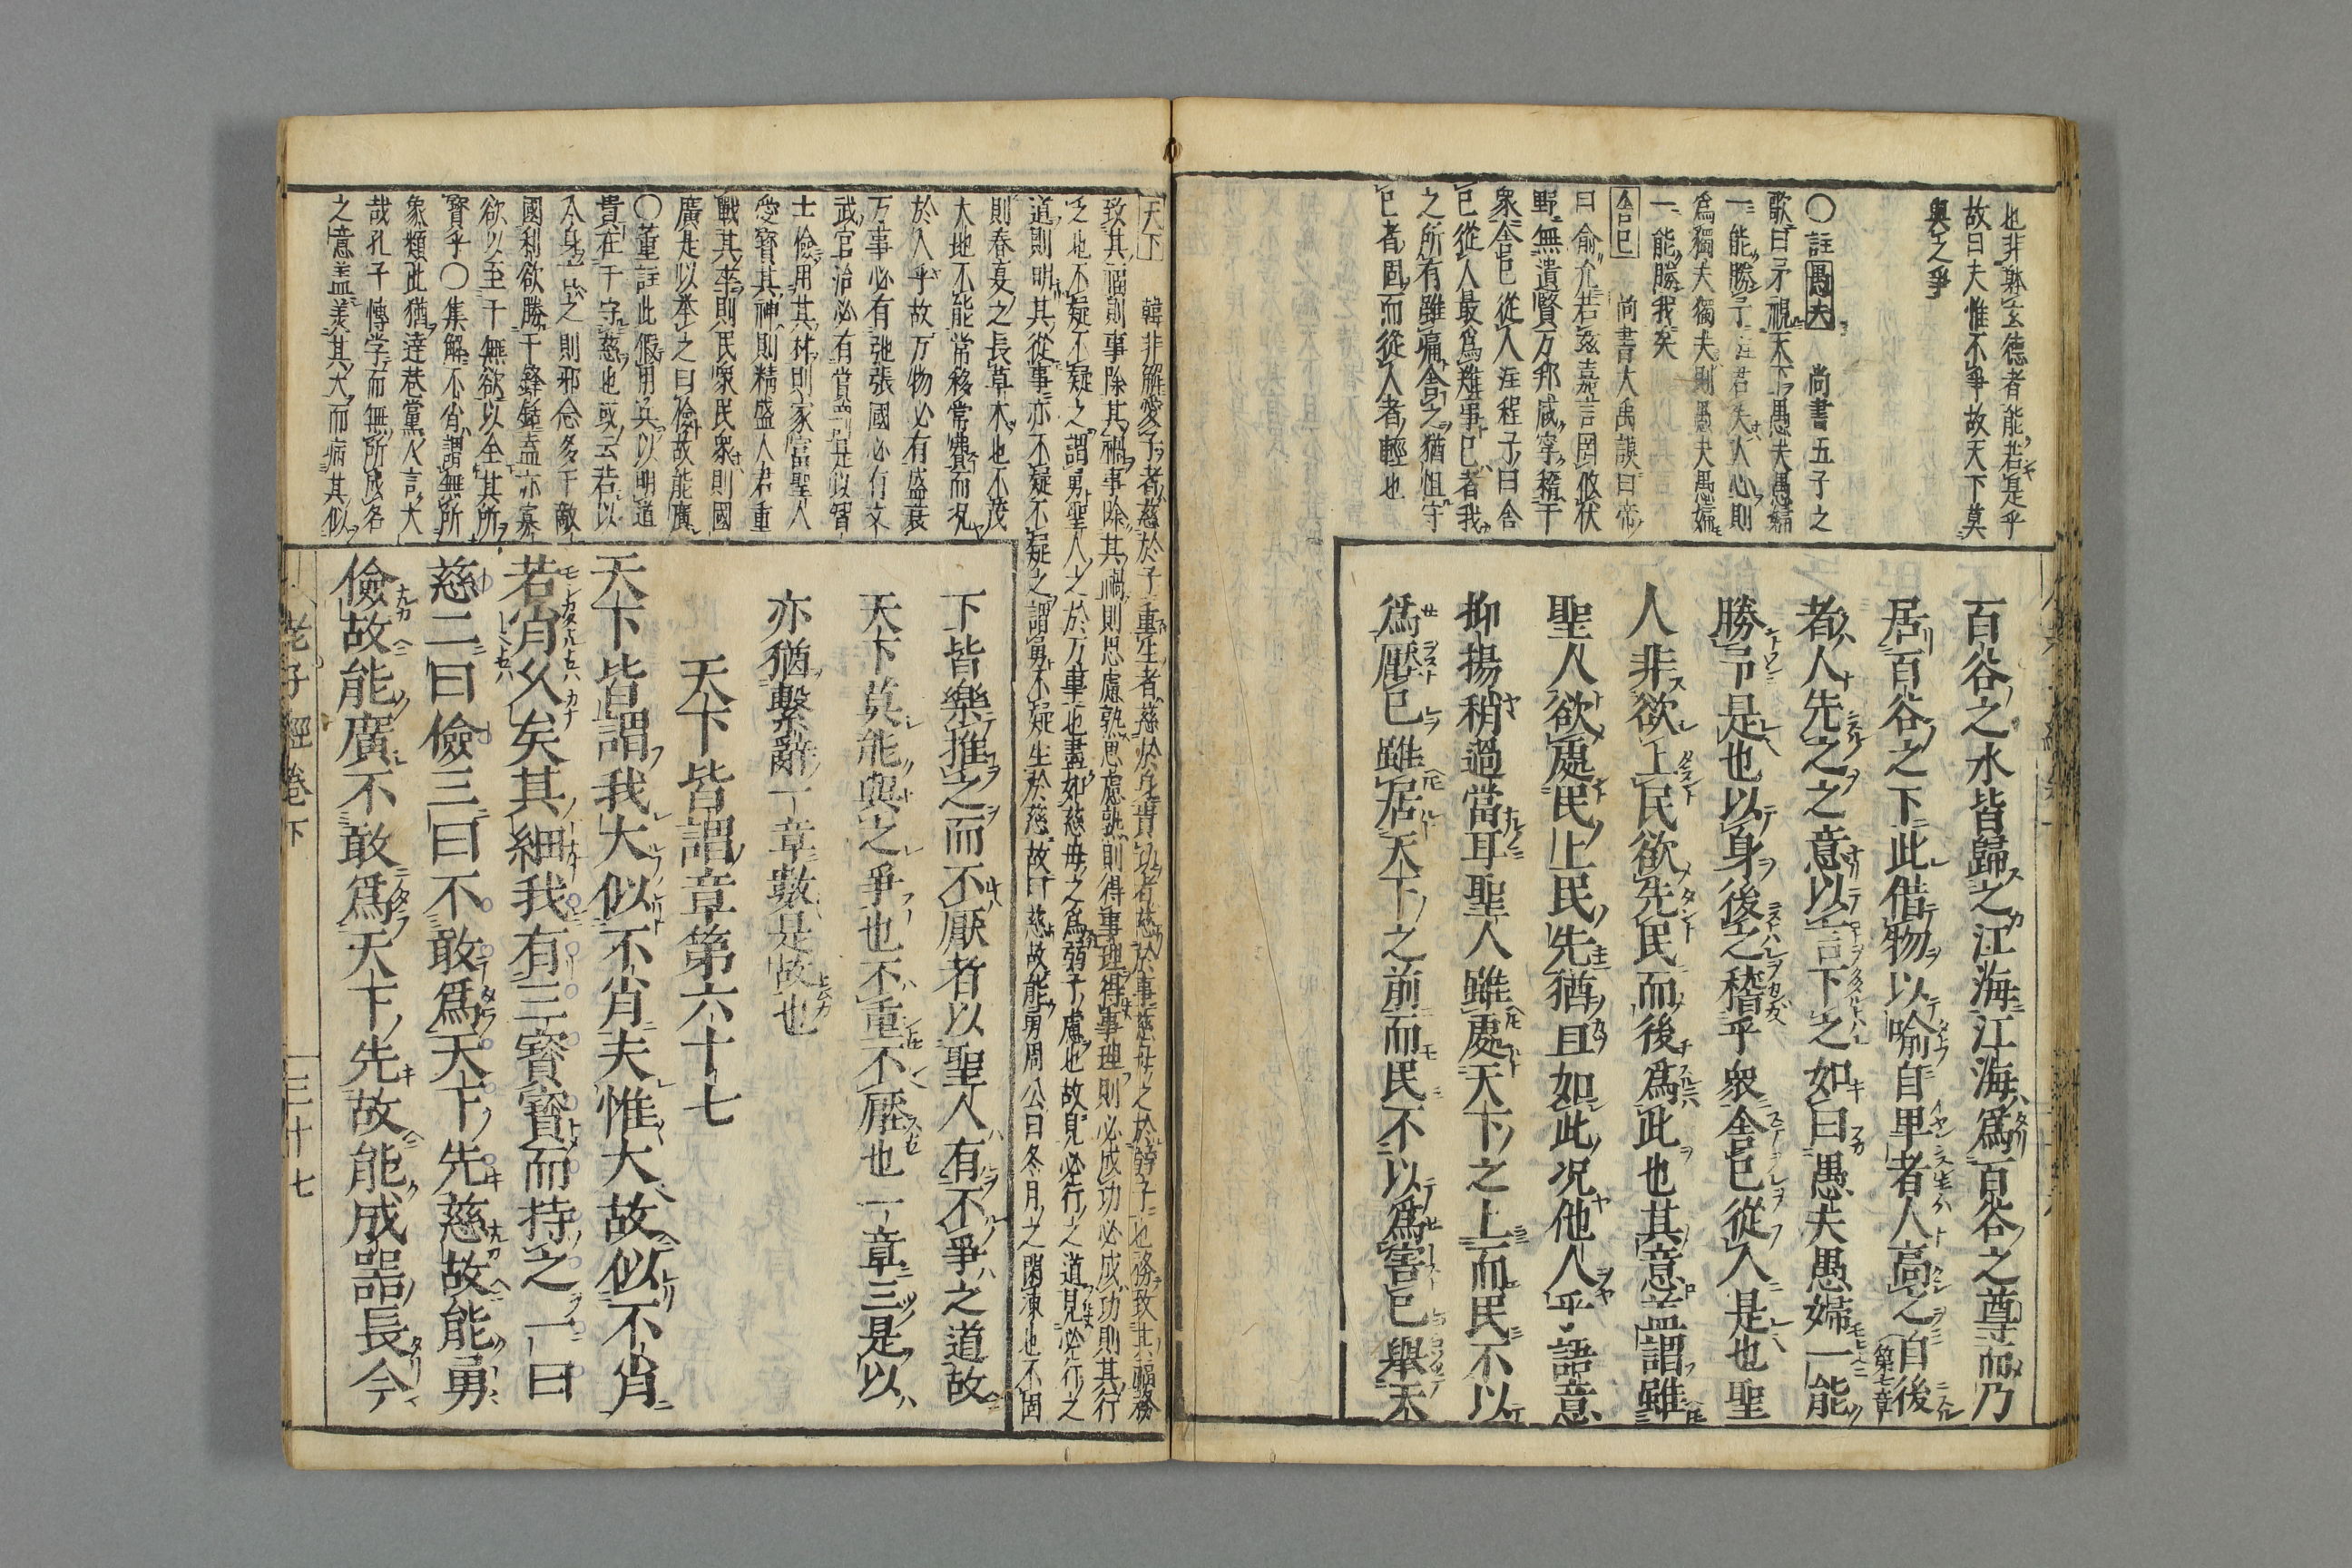 也非躰玄德者能若是乎
故曰夫惟不爭故天下莫
與之爭
〇註愚夫 尚書五子之
歌曰予視天下愚夫愚婦
一能勝予註君失人心則
爲獨夫獨夫則愚夫愚婦
一能勝我矣
舎已 尚書大禹謨曰帝
曰俞允若茲嘉言罔攸伏
野無遺賢万邦咸寧稽于
衆舎已從人註程子曰舎
已從人最爲難事已者我
之所有雖痛舎之猶惧守
已者固而從人者輕也
百谷之水皆歸之江海江海爲百谷之尊而乃
居百谷之下此借物以喻自卑者人高之自後
第七章
者人先之之意以言下之如曰愚夫愚婦一能
勝予是也以身後之稽乎衆舎已從人是也聖
人非欲上民欲先民而後爲此也其意盖謂雖
聖人欲處民上民先猶且如此况他人乎語意
抑揚稍過當耳聖人雖處天下之上而民不以
爲壓已雖居天下之前而民不以爲害已舉天
天下 韓非解愛子者慈於子重生者慈於身貴功者慈於事慈母之於弱子也務致其福務
致其福則事除其禍事除其禍則思慮熟思慮熟則得事理得事理則必成功必成功則其行
之也不疑不疑之謂勇聖人之於万事也盡如慈母之爲弱子慮也故見必行之道見必行之
道則明其從事亦不疑不疑之謂勇不疑生於慈故曰慈故能勇周公曰冬月之閉凍也不固
則春夏之長草木也不茂
大地不能常移常費而况
於人乎故万物必有盛衰
万事必有弛張國必有文
武官治必有賞罰是以智
士儉用其材則家富聖人
愛寳其神則精盛人君重
戰其卒則民衆民衆則國
廣是以舉之曰儉故能廣
〇董註此假用兵以明道
貴在于守慈也或云若以
本身言之則邪念多于敵
國利欲勝于鋒鏑盍亦寡
欲以至于無欲以全其所
寳乎〇集解不肖謂無所
象類此猶達巷黨人言大
哉孔子博学而無所成名
之意盖美其大而病其似
下皆樂推之而不厭者以聖人有不爭之道故
天下莫能與之爭也不重不壓也一章三是以
亦猶繫辭一章數是故也
天下皆謂章第六十七
天下皆謂我大似不肖夫惟大故似不肖
若肖久矣其細我有三寳寳而持之一曰
慈二曰儉三曰不敢爲天下先慈故能勇
儉故能廣不敢爲天下先故能成噐長今
老子經卷下
三十七